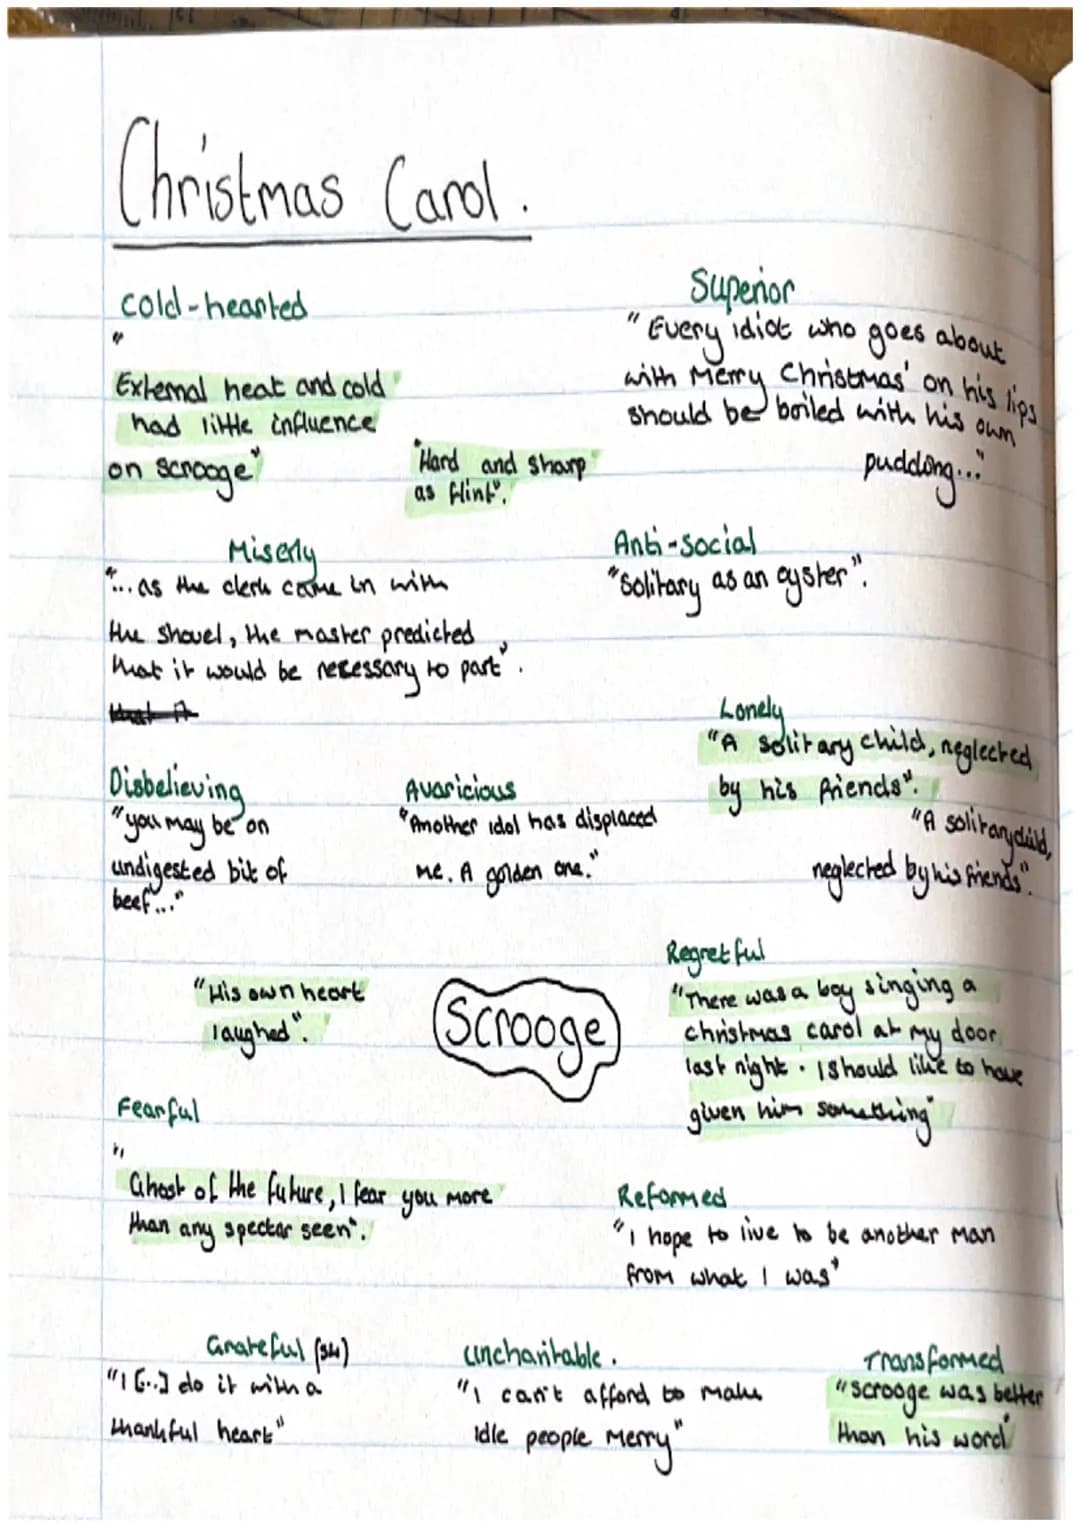 Christmas Carol.
cold-hearted
"
External heat and cold
had little influence
on Scrooge"
"Hard and sharp
as flint".
Superior
"Every idiot who goes about
with Merry Christmas' on his lips
should be boiled with his own
pudding..."
Miserly
"...as the clerk came in with
the shovel, the master predicted
that it would be necessary to part".
Anti-social
"Solitary as an oyster".
Lonely
"A solitary child, neglected
by his friends".
"A solitary child,
neglected by his friends".
Disbelieving
"you may be on
undigested bit of
beef..."
Avaricious
"Another idol has displaced
me. A golden one."
"His own heart
laughed".
Scrooge
Regretful
"There was a boy singing a
christmas carol at my door
last night. I should like to have
given him something"
Fearful
"
Ghost of the future, I fear you more
than any spectar seen".
Reformed
"I hope to live to be another man
from what I was"
Grateful (S4)
"I [...] do it with a
thankful heart"
Uncharitable.
"I can't afford to make
idle people merry"
Transformed
"Scrooge was better
than his word"